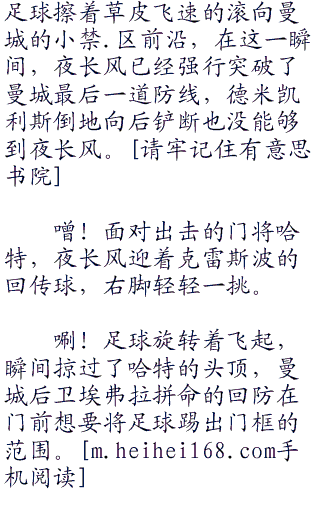 足球擦着草皮飞速的滚向曼
城的小禁.区前沿，在这一瞬
间，夜长风已经强行突破了
曼城最后一道防线，德米凯
利斯倒地向后铲断也没能够
到夜长风。[请牢记住有意思
书院]
噌！面对出击的门将哈
特，夜长风迎着克雷斯波的
回传球，右脚轻轻一挑。
唰！足球旋转着飞起，
瞬间掠过了哈特的头顶，曼
城后卫埃弗拉拼命的回防在
门前想要将足球踢出门框的
范围。[m.heihei168.com手
机阅读]